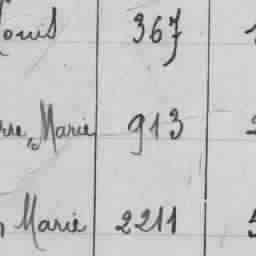 Louis 367
Marie 913
Marie 2211